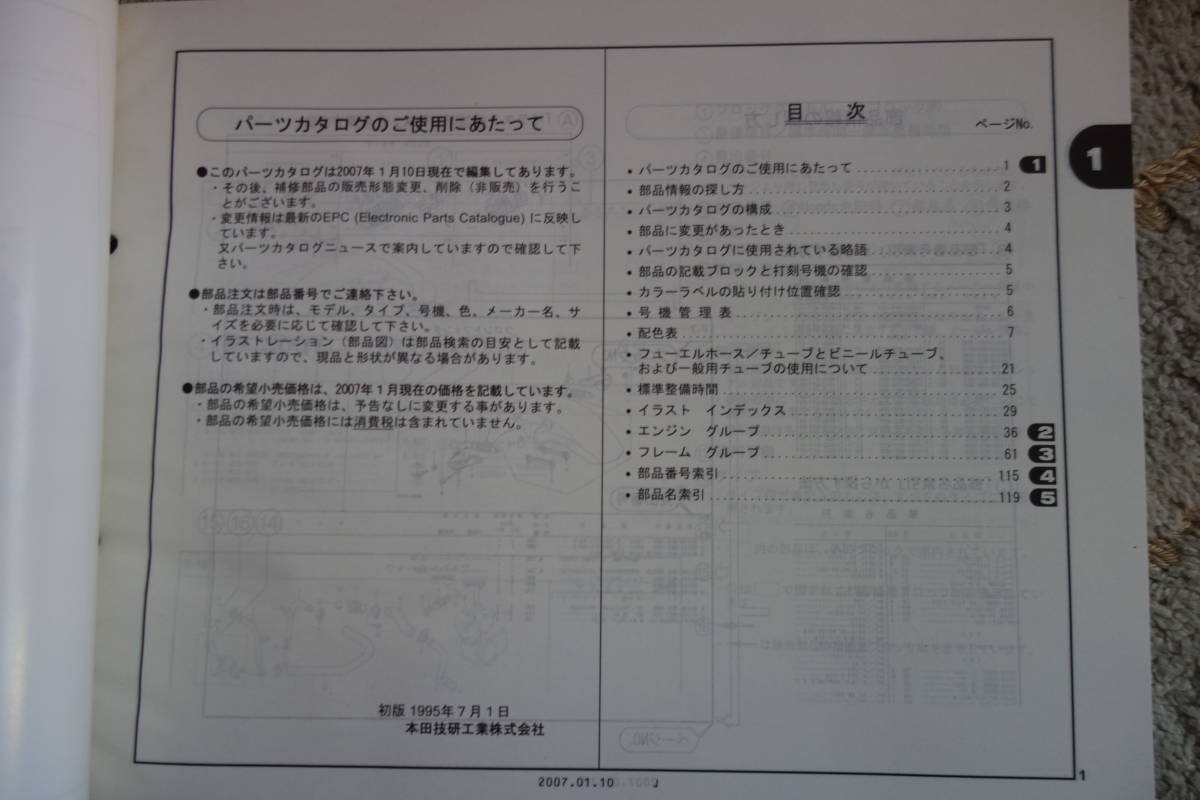 パーツカタログのご使用にあたって
●このパーツカタログは2007年1月10日現在で編集してあります。
・その後、補修部品の販売形態変更、削除（非販売）を行うこ
とがございます。
・変更情報は最新のEPC (Electronic Parts Catalogue) に反映し
ています。
又パーツカタログニュースで案内していますので確認して下
さい。
●部品注文は部品番号でご連絡下さい。
・部品注文時は、モデル、タイプ、号機、色、メーカー名、サ
イズを必要に応じて確認して下さい。
・イラストレーション（部品図）は部品検索の目安として記載
していますので、現品と形状が異なる場合があります。
●部品の希望小売価格は、2007年1月現在の価格を記載しています。
・部品の希望小売価格は、予告なしに変更する事があります。
・部品の希望小売価格には消費税は含まれていません。
初版 1995年7月1日
本田技研工業株式会社
目 次
ページNo.
・パーツカタログのご使用にあたって 1 1
・部品情報の探し方 2
・パーツカタログの構成 3
・部品に変更があったとき 4
・パーツカタログに使用されている略語 4
・部品の記載ブロックと打刻号機の確認 5
・カラーラベルの貼り付け位置確認 5
・号 機 管 理 表 6
・配色表 7
・フューエルホース／チューブとビニールチューブ、
および一般用チューブの使用について 21
・標準整備時間 25
・イラスト インデックス 29
・エンジン グループ 36 2
・フレーム グループ 61 3
・部品番号索引 115 4
・部品名索引 119 5
1
2007.01.10 J
1